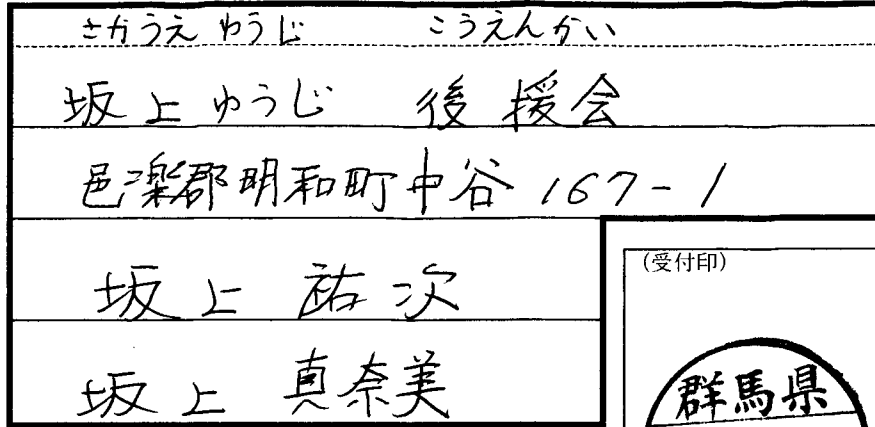 さかうえ ゆうじ こうえんかい
坂上ゆうじ 後援会
邑楽郡明和町中谷 167-1
坂上 祐次
(受付印)
坂上 真奈美
群馬県